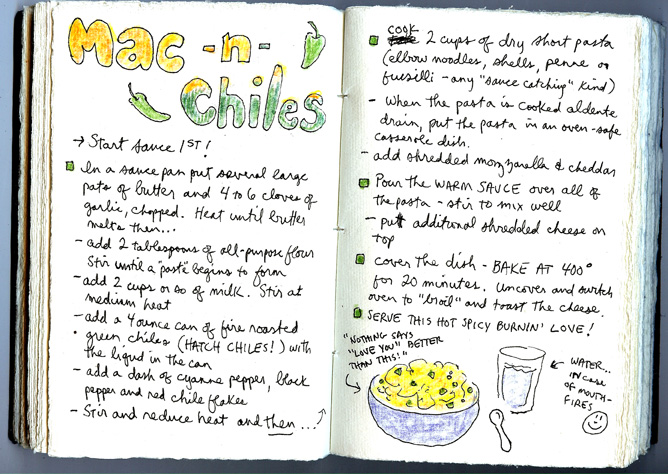 Mac -n-
Chiles
→ Start sauce 1ST!
In a sauce pan put several large
pats of butter and 4 to 6 cloves of
garlic, chopped. Heat until butter
melts then...
- add 2 tablespoons of all-purpose flour
Stir until a "paste" begins to form
- add 2 cups or so of milk. Stir at
medium heat
- add a 4 ounce can of fire roasted
green chiles (HATCH CHILES!) with
the liquid in the can
- add a dash of cyanne pepper, black
pepper and red chile flakes
- Stir and reduce heat and then...
cook
2 cups of dry short pasta
(elbow noodles, shells, penne or
fuesilli - any "sauce catching" kind)
- When the pasta is cooked aldente
drain, put the pasta in an oven-safe
casserole dish.
- add shredded mozzarella & cheddar
Pour the WARM SAUCE over all of
the pasta - stir to mix well
- put additional shredded cheese on
top
Cover the dish - BAKE AT 400°
for 20 minutes. Uncover and switch
oven to "broil" and toast the cheese.
SERVE THIS HOT SPICY BURNIN' LOVE!
"NOTHING SAYS
"LOVE YOU" BETTER
THAN THIS!"
WATER...
IN CASE
OF MOUTH-
FIRES